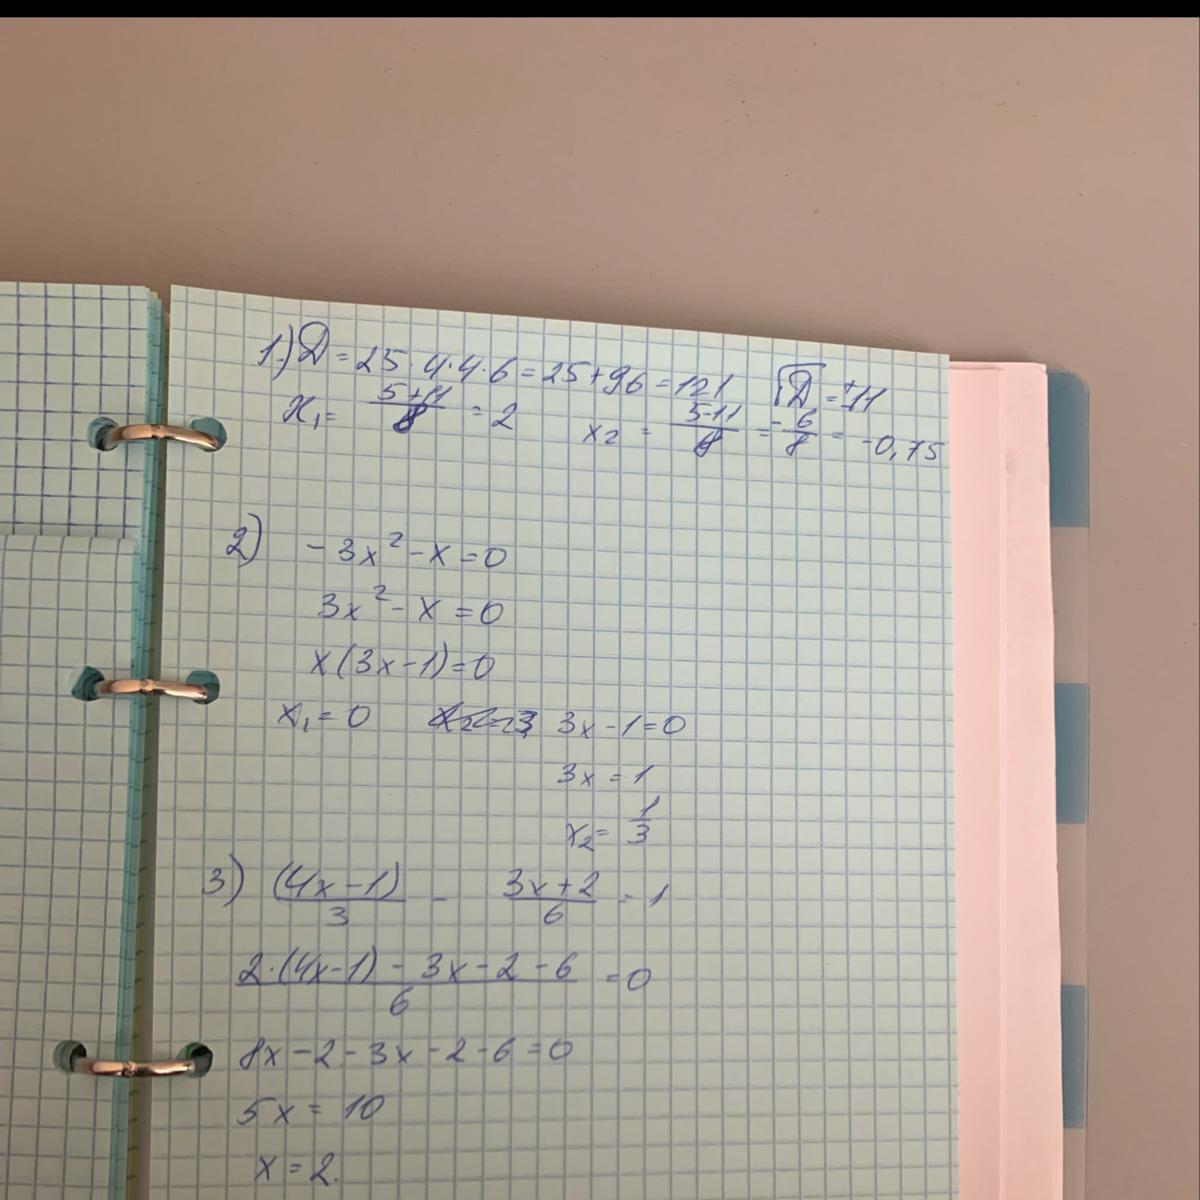 1.) D = 25·4·4·6 = 25+96 = 121 √D = ±11
x₁ = (5+11)/8 = 2 x₂ = (5-11)/8 = -6/8 = -0,75
2) -3x² - x = 0
3x² - x = 0
x(3x-1) = 0
x₁ = 0 3x-1=0
3x = 1
x₂ = 1/3
3) (4x-1)/3 - (3x+2)/6 = 1
(2·(4x-1) - 3x - 2 - 6)/6 = 0
8x - 2 - 3x - 2 - 6 = 0
5x = 10
x = 2.